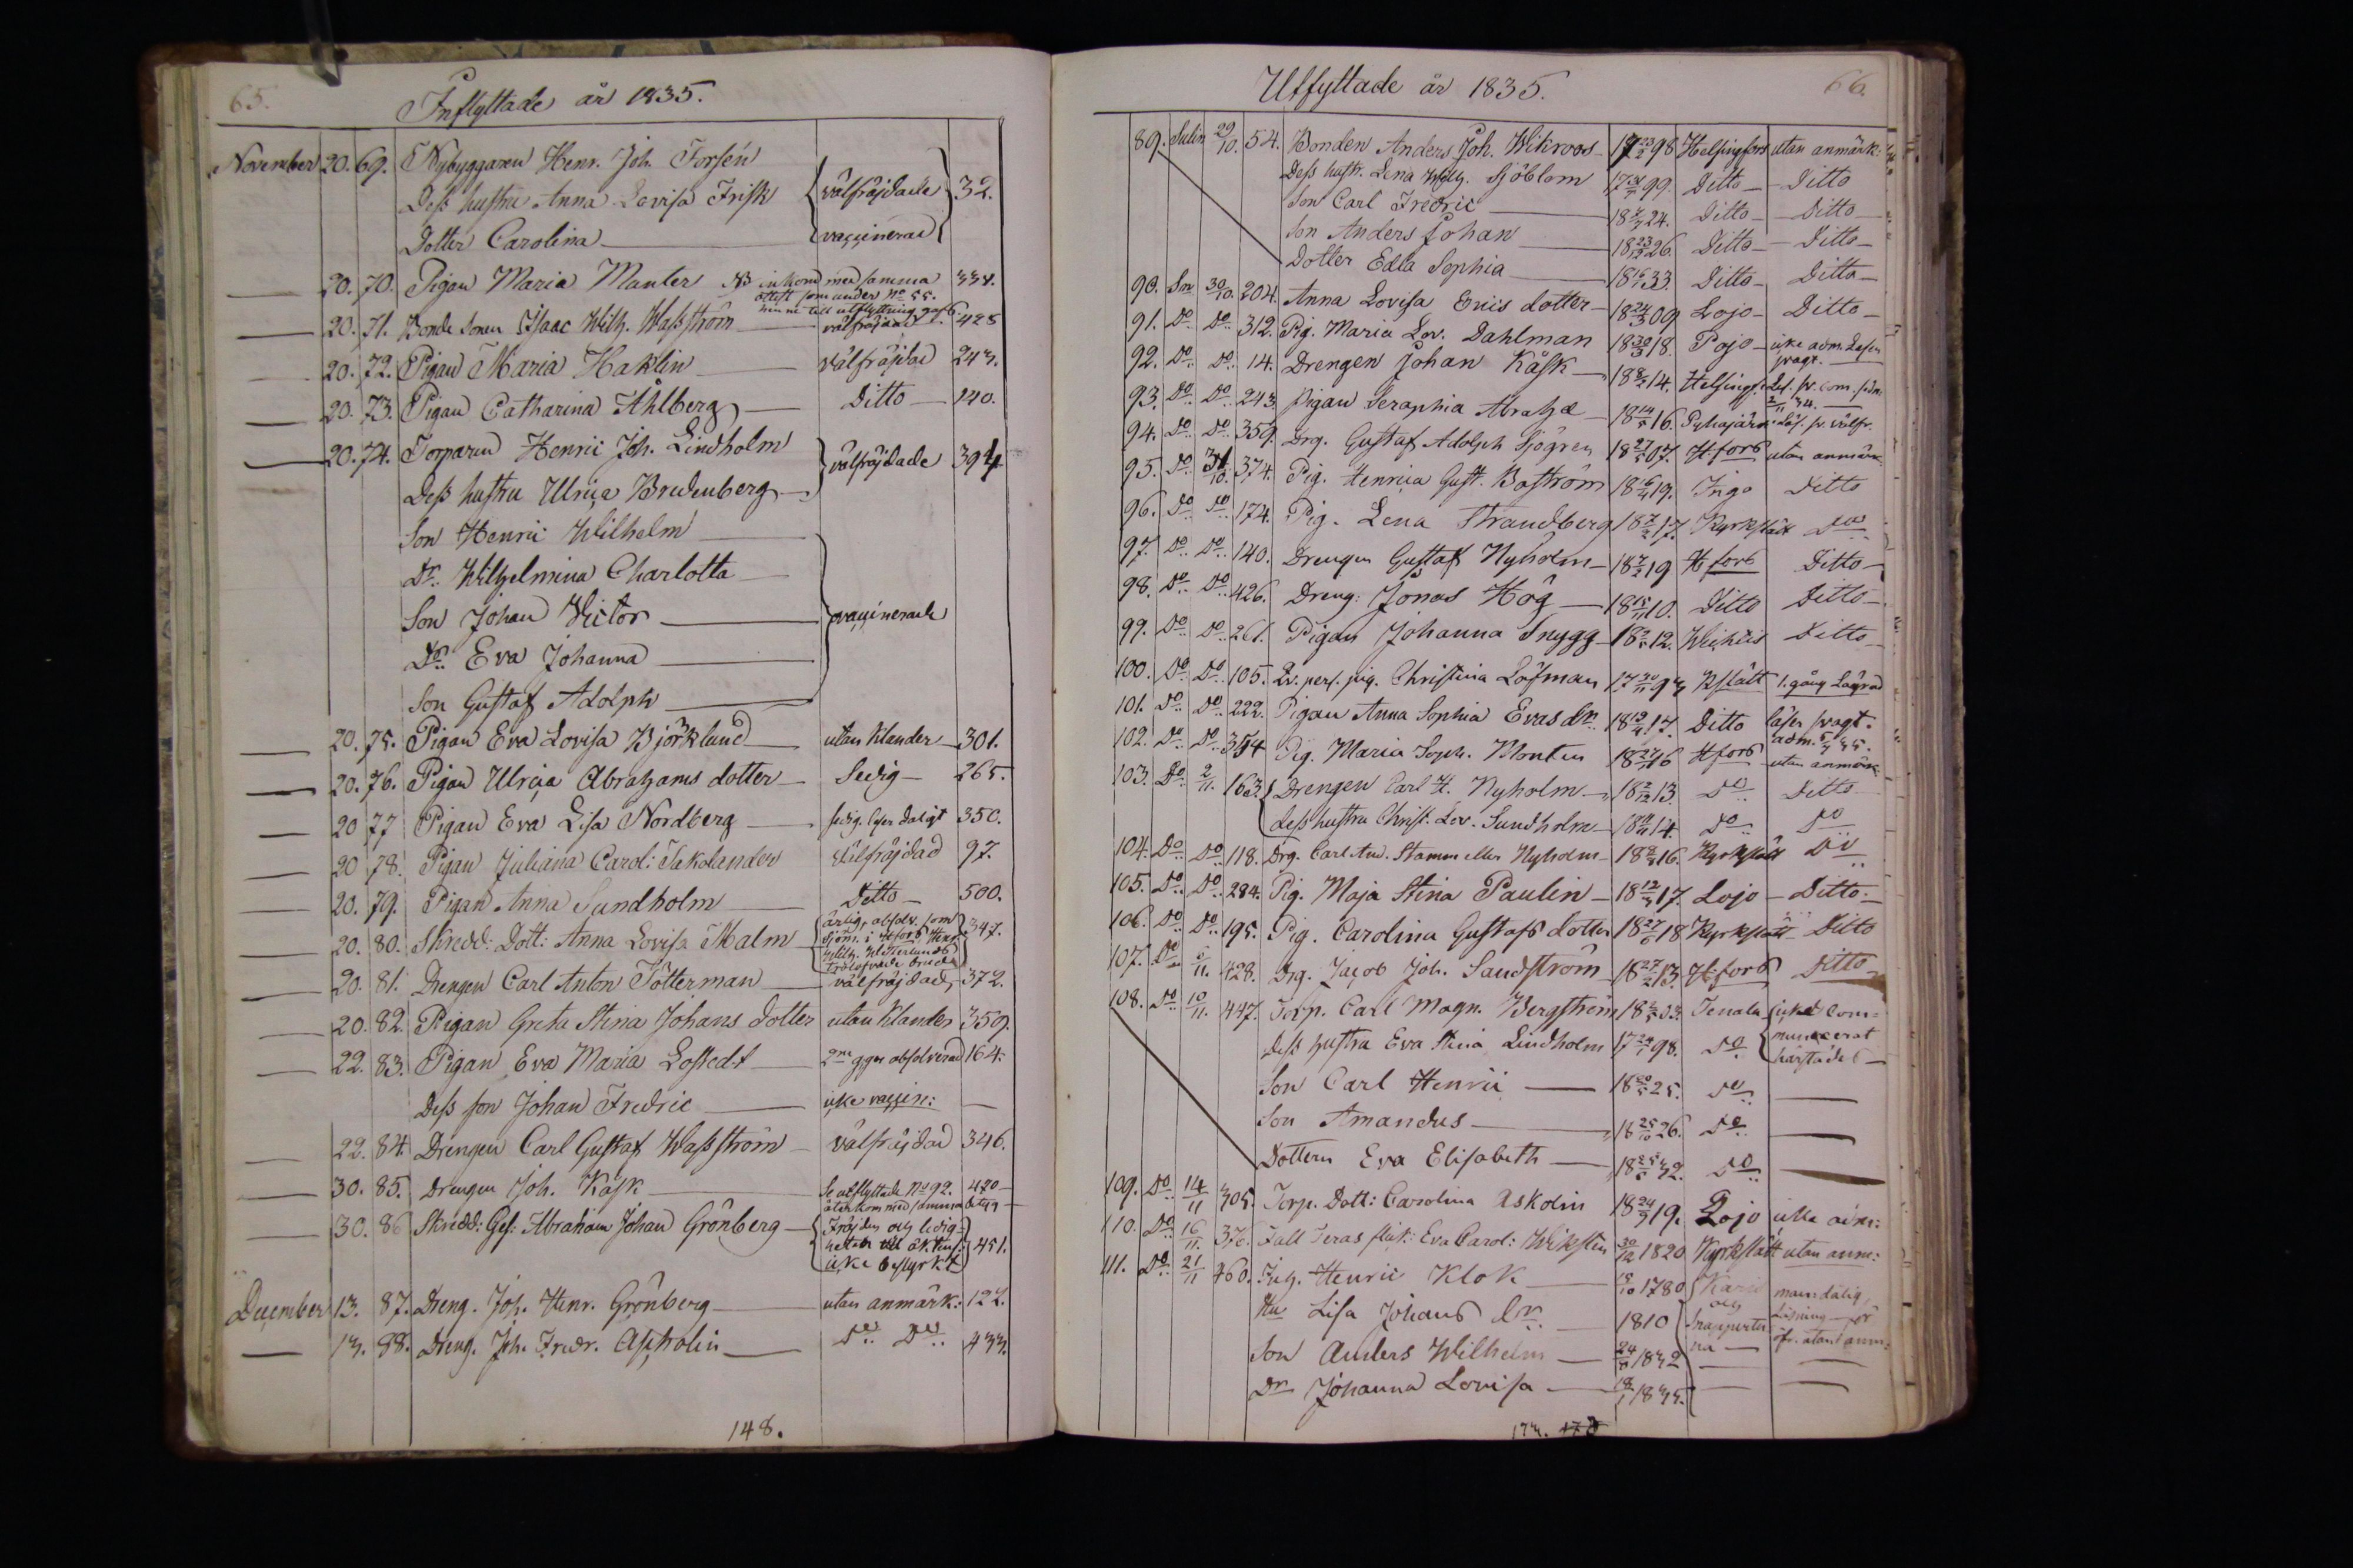 65.
Inflyttade år 1835.
November 20. 69. Nybyggaren Henr. Joh. Forsén
Dess hustru Anna Lovisa Frisk välfräjdade 32.
Dotter Carolina vaccinerad
20. 70. Pigan Maria Manter NB inkom med samma 338.
attest som under No 55.
20. 71. Bonde sonen Isaac Wilh. Wasström välfräjdad 425
20. 72. Pigan Maria Haklin välfräjdad 243.
20. 73. Pigan Catharina Åhlberg Ditto 140.
20. 74. Torparen Henric Joh. Lindholm välfräjdade 394
Dess hustru Ulrica Bredenberg
Son Henric Wilhelm
Dr. Wilhelmina Charlotta
Son Johan Victor vaccinerade
Dr. Eva Johanna
Son Gustaf Adolph
20. 75. Pigan Eva Lovisa Björklund utan klander 301.
20. 76. Pigan Ulrica Abrahams dotter Sedig 265.
20 77 Pigan Eva Lisa Nordberg sedig. läser daligt 350.
20 78. Pigan Juliana Carol: Takolander välfräjdad 97.
20. 79. Pigan Anna Sundholm Ditto 500.
20. 80. Skredd: Dott: Anna Lovisa Malm ärlig, absolv. som 347.
sjöm. i Hfors Henr.
Wilh. Westerlunds
trolofvade brud
20. 81. Drengen Carl Anton Tötterman välfräjdad, 372.
20. 82. Pigan Greta Stina Johans dotter utan klander 359.
22. 83. Pigan Eva Maria Lofstedt 2ne ggr absolverad 164.
Dess son Johan Fredric icke vaccin:
22. 84. Drengen Carl Gustaf Wasström välfräjdad 346.
30. 85. Drengen Joh. Kåsk Se utflyttade No 92. 420
återkom med samma betyg
30. 86 Skredd: Ges: Abraham Johan Grönberg Fräjden och ledig-
heten till äktensk: 451.
icke bestyrkt
December 13. 87. Dreng. Joh. Henr. Grönberg utan anmärk: 122.
13. 88. Dreng. Joh. Fredr. Aspholin Do Do 433.
148.
Utflyttade år 1835.
66.
89. Sulin 29/10. 54. Bonden Anders Joh. Wikroos 17 23/2 98 Helsingfors utan anmärk:
Dess hustr. Lena Wilh. Sjöblom 99. Ditto Ditto
Son Carl Fredric 24. Ditto Ditto
Son Anders Johan 26. Ditto Ditto
Dotter Edla Sophia 33. Ditto Ditto
90. Sn 30/10. 204. Anna Lovisa Erics dotter 18 24/3 09 Lojo Ditto
91. Do Do 312. Pig. Maria Lov. Dahlman 18 30/3 18. Pojo icke adm. Läser
svagt.
92. Do Do 14. Drengen Johan Kåsk 14. Helsingf.
93. Do Do 243. Pigan Seraphia Abrahd 18 14/5 16. Pyhäjärvi
94. Do Do 359. Drg. Gustaf Adolph Sjögren 18 27/5 07. Hfors utan anmärk
95. Do 31/10. 374. Pig. Henrica Gust. Boström 19. Ingo Ditto
96. Do Do 174. Pig. Lena Strandberg 17. Kyrkslätt Do
97. Do Do 140. Drengen Gustaf Nyholm 19 Hfors Ditto
98. Do Do 426. Dreng: Jonas Hög 18 15/11 10. Ditto Ditto
99. Do Do 261. Pigan Johanna Snygg 12. Wichtis Ditto
100. Do Do 105. Qv. pers. pig. Christina Löfman 17 30/11 93 Kslätt 1. gång Lägrad
101. Do Do 222. Pigan Anna Sophia Evas dr. 17. Ditto läser svagt.
102. Do Do 354 Pig. Maria Soph. Monten 16 Hfors utan anmärk
103. Do 2/11. 163. Drengen Carl H. Nyholm 18 2/12 13. Do Ditto
dess hustru Christ. Lov. Sundholm 14. Do Do
104. Do Do 118. Drg. Carl And. Stamm eller Nyholm 16. Kyrkslätt Do
105. Do Do 284. Pig. Maja Stina Paulin 17. Lojo Ditto
106. Do Do 195. Pig. Carolina Gustafs dotter 18 27/6 18 Kyrkslätt Ditto
107. Do 6/11. 428. Drg. Jacob Joh. Sandström 18 27/2 13. Hfors Ditto
108. Do 10/11. 447. Torp. Carl Magn. Bergström 03. Tenala icke com=
municerat
härstädes
Dess hustru Eva Stina Lindholm 98. Do
Son Carl Henric 25. Do
Son Amandus 18 25/10 26. Do
Dottern Eva Elisabeth 32. Do
109. Do 14/11 305. Torp. Dott: Carolina Askolin 18 24/9 19. Lojo icke adm:
110. Do 16/11. 376. Eva Carol: Wiksten 30/12 1820 Kyrkslätt utan anm:
111. Do 21/11 460. Inh. Henric Klok 18/10 1780 Karis
Hu Lisa Johans dr. 1810 och Snappertu
na
Son Anders Wilhelm 1832
Dr Johanna Lovisa 18/1 1835.
173.